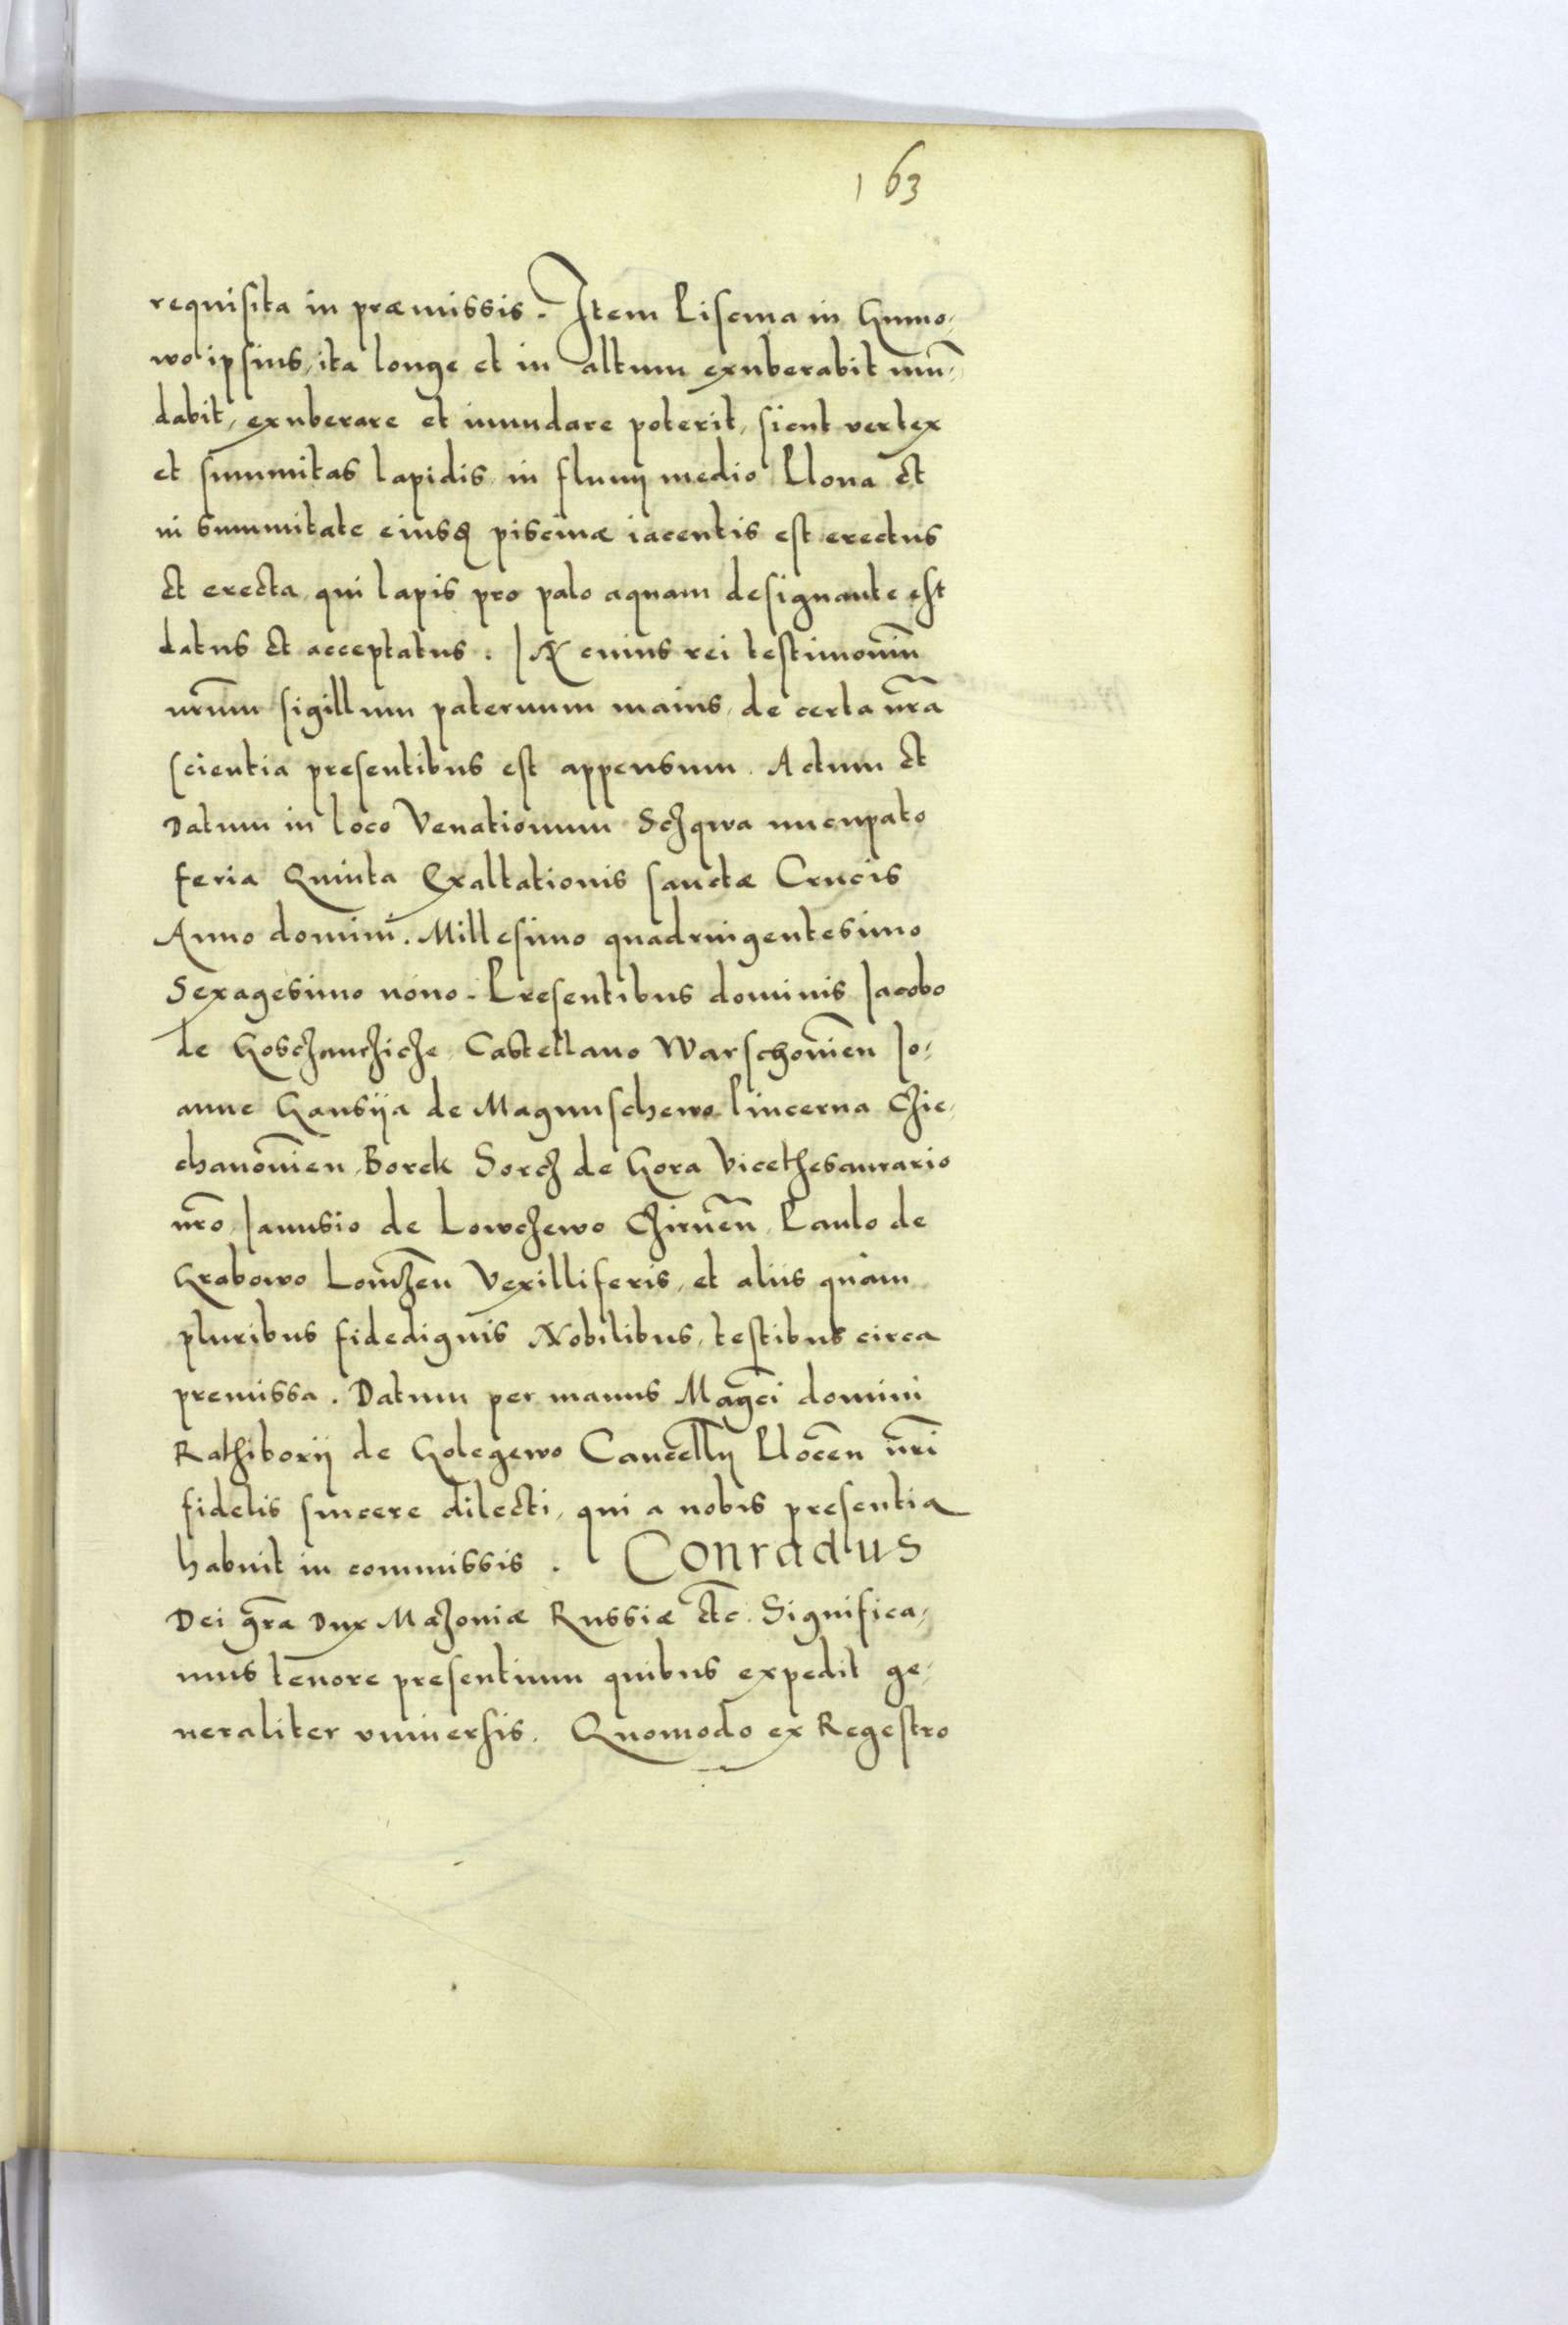 163
requisita in præmissis. Item Piscina in Gumo-
wo ipsius, ita longe et in altum exuberabit inũ-
dabit, exuberare et inundare poterit, sicut vertex
et summitas lapidis in fluuij medio Plona et
in summitate eiusq piscinæ iacentis est erectus
et erecta, qui lapis pro palo aquam designante est
datus et acceptatus. IN cuius rei testimoniũ
nr̃um sigillum paternum maius, de certa nr̃a
scientia presentibus est appensum. Actum et
Datum in loco Venationum Sczqwa nucupato
feria Quinta Exaltationis sanctæ Crucis
Anno domini. Millesimo quadringentesimo
Sexagesimo nono. Presentibus dominis Jacobo
de Castellano Warschouień Jo-
anne Gansija de Magnuschewo Pincerna Czie-
chanouień, Borck Sorcz de Gora Vicethesaurario
nr̃o, Janusio de Lowczewo Czirnẽn, Paulo de
Grabowo Lomzẽn Vexilliferis, et aliis quàm
pluribus fidedignis Nobilibus, testibus circa
premissa. Datum per manus Magci domini
Rathiborij de Golegewo Cancellij Plocẽn nr̃i
fidelis sincere dilecti, qui a nobis presentia
habuit in commissis. Conradus
Dei gr̃a Dux Mazoniæ Russiæ etc. Significa-
mus tenore presentium quibus expedit ge-
neraliter vniuersis. Quomodo ex Regestro